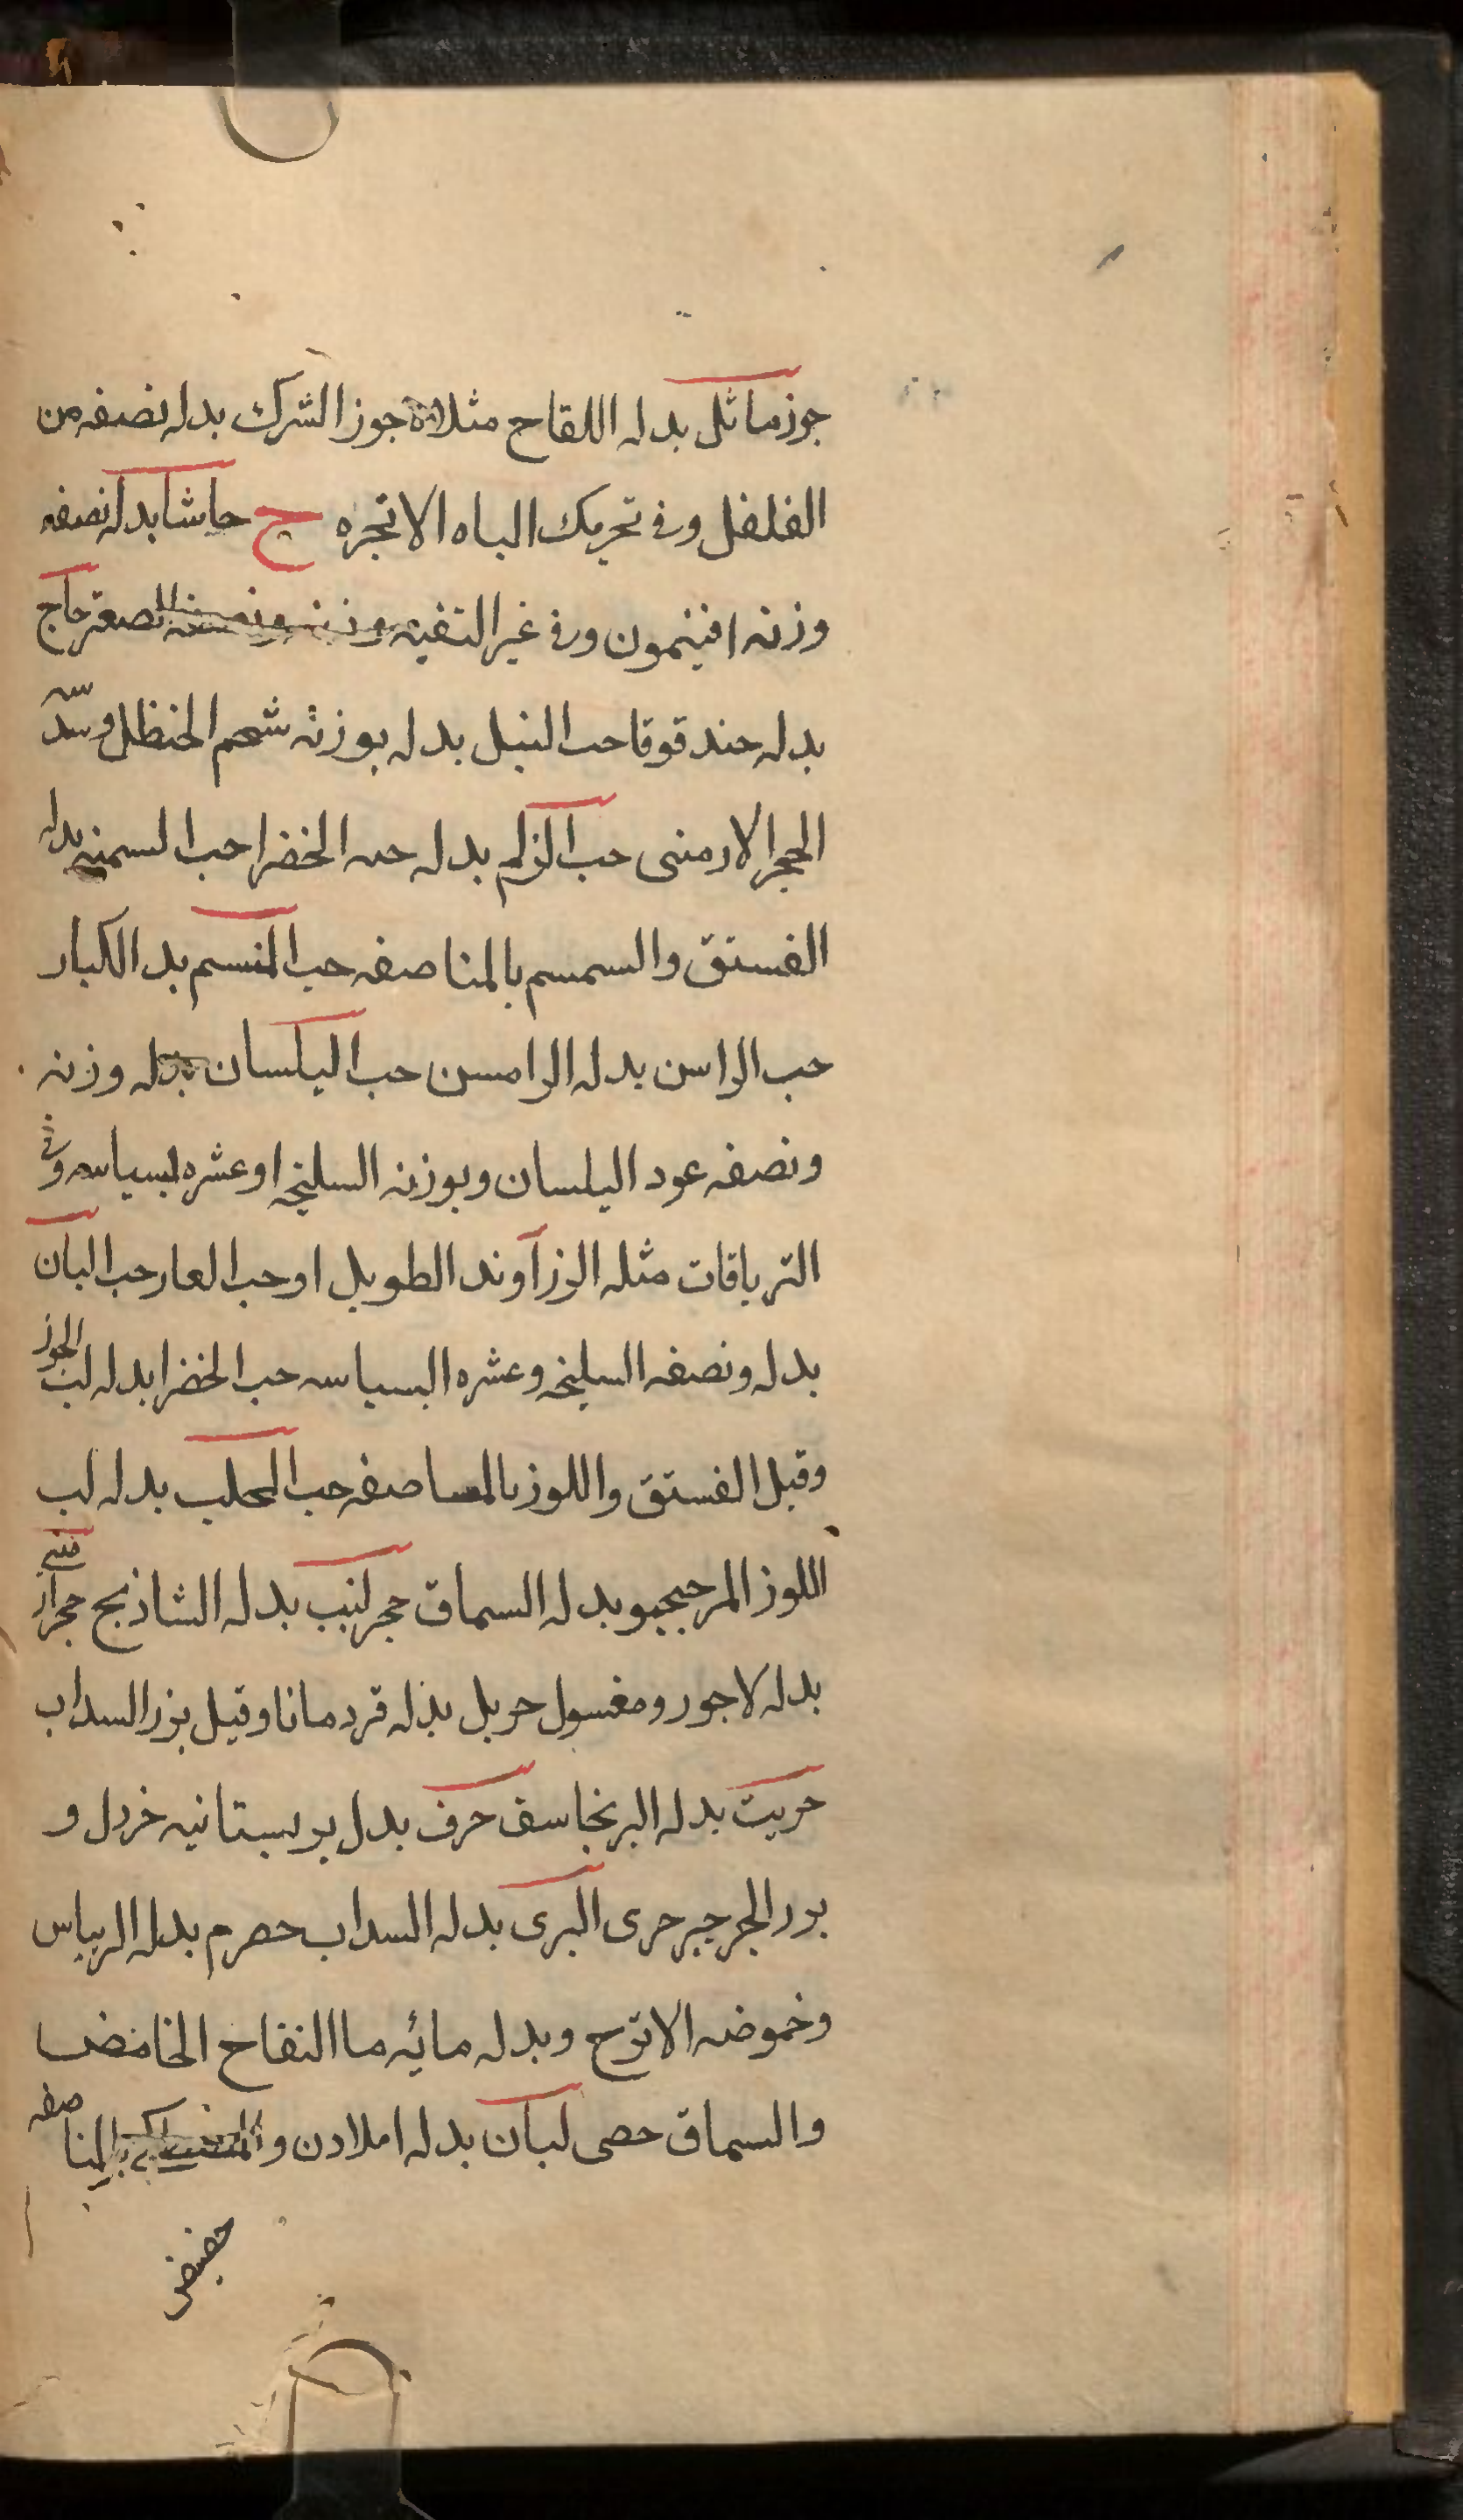 جوزماثل بدله اللقاح مثلاه جوز الشرك بدله نصفه من
الفلفل وفي تحريك الباه الانجره ح حاشا بدله نصفه
وزنه افتيمون وفي غير التقيه وزنه ونصفه الصعتر حاج
بدله حندقوقا حب النيل بدله بوزنه شحم الحنظل وسدسه
الحجر الارمنى حب الزلم بدله حبه الخضرا حب السمنه بدله
الفستق والسمسم بالمناصفه حب المنسم بدله الكبار
حب الراسن بدله الرامسن حب البلسان بدله وزنه
ونصفه عود البلسان وبوزنه السليخه او عشره بسباسه وفي
الترياقات مثله الزراوند الطويل او حب الغار حب البان
بدله ونصفه السليخه وعشره البسباسه حب الخضرا بدله لب الجوز
وقيل الفستق واللوز بالمناصفه حب المحلب بدله لب
اللوز المر حبجبو بدله السماق حجر لبنى بدله الشاذنج حجر ارمنى
بدله لاجورد مغسول حرمل بدله قردمانا وقيل بزر السداب
حريت بدله البرنجاسف حرف بدل بر بستانيه خردل و
بزر الجرجير حرى البرى بدله السداب حصرم بدله الريباس
وخموضه الاترج وبدله مائه ما التفاح الخامض
والسماق حصى لبان بدله املادن و بالمناصفه
حضض